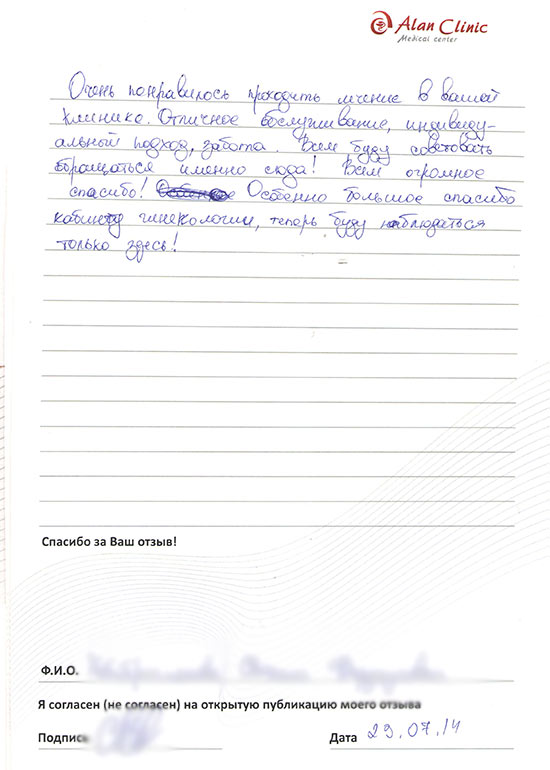 Alan Clinic
Medical center
Очень понравилось проходить лечение в вашей
клинике. Отличное обслуживание, индивиду-
альный подход, забота. Всем буду советовать
обращаться именно сюда! Всем огромное
спасибо! Особенно большое спасибо
кабинету гинекологии, теперь буду наблюдаться
только здесь!
Спасибо за Ваш отзыв!
Ф.И.О.
Я согласен (не согласен) на открытую публикацию моего отзыва
Подпись
Дата 29.07.14